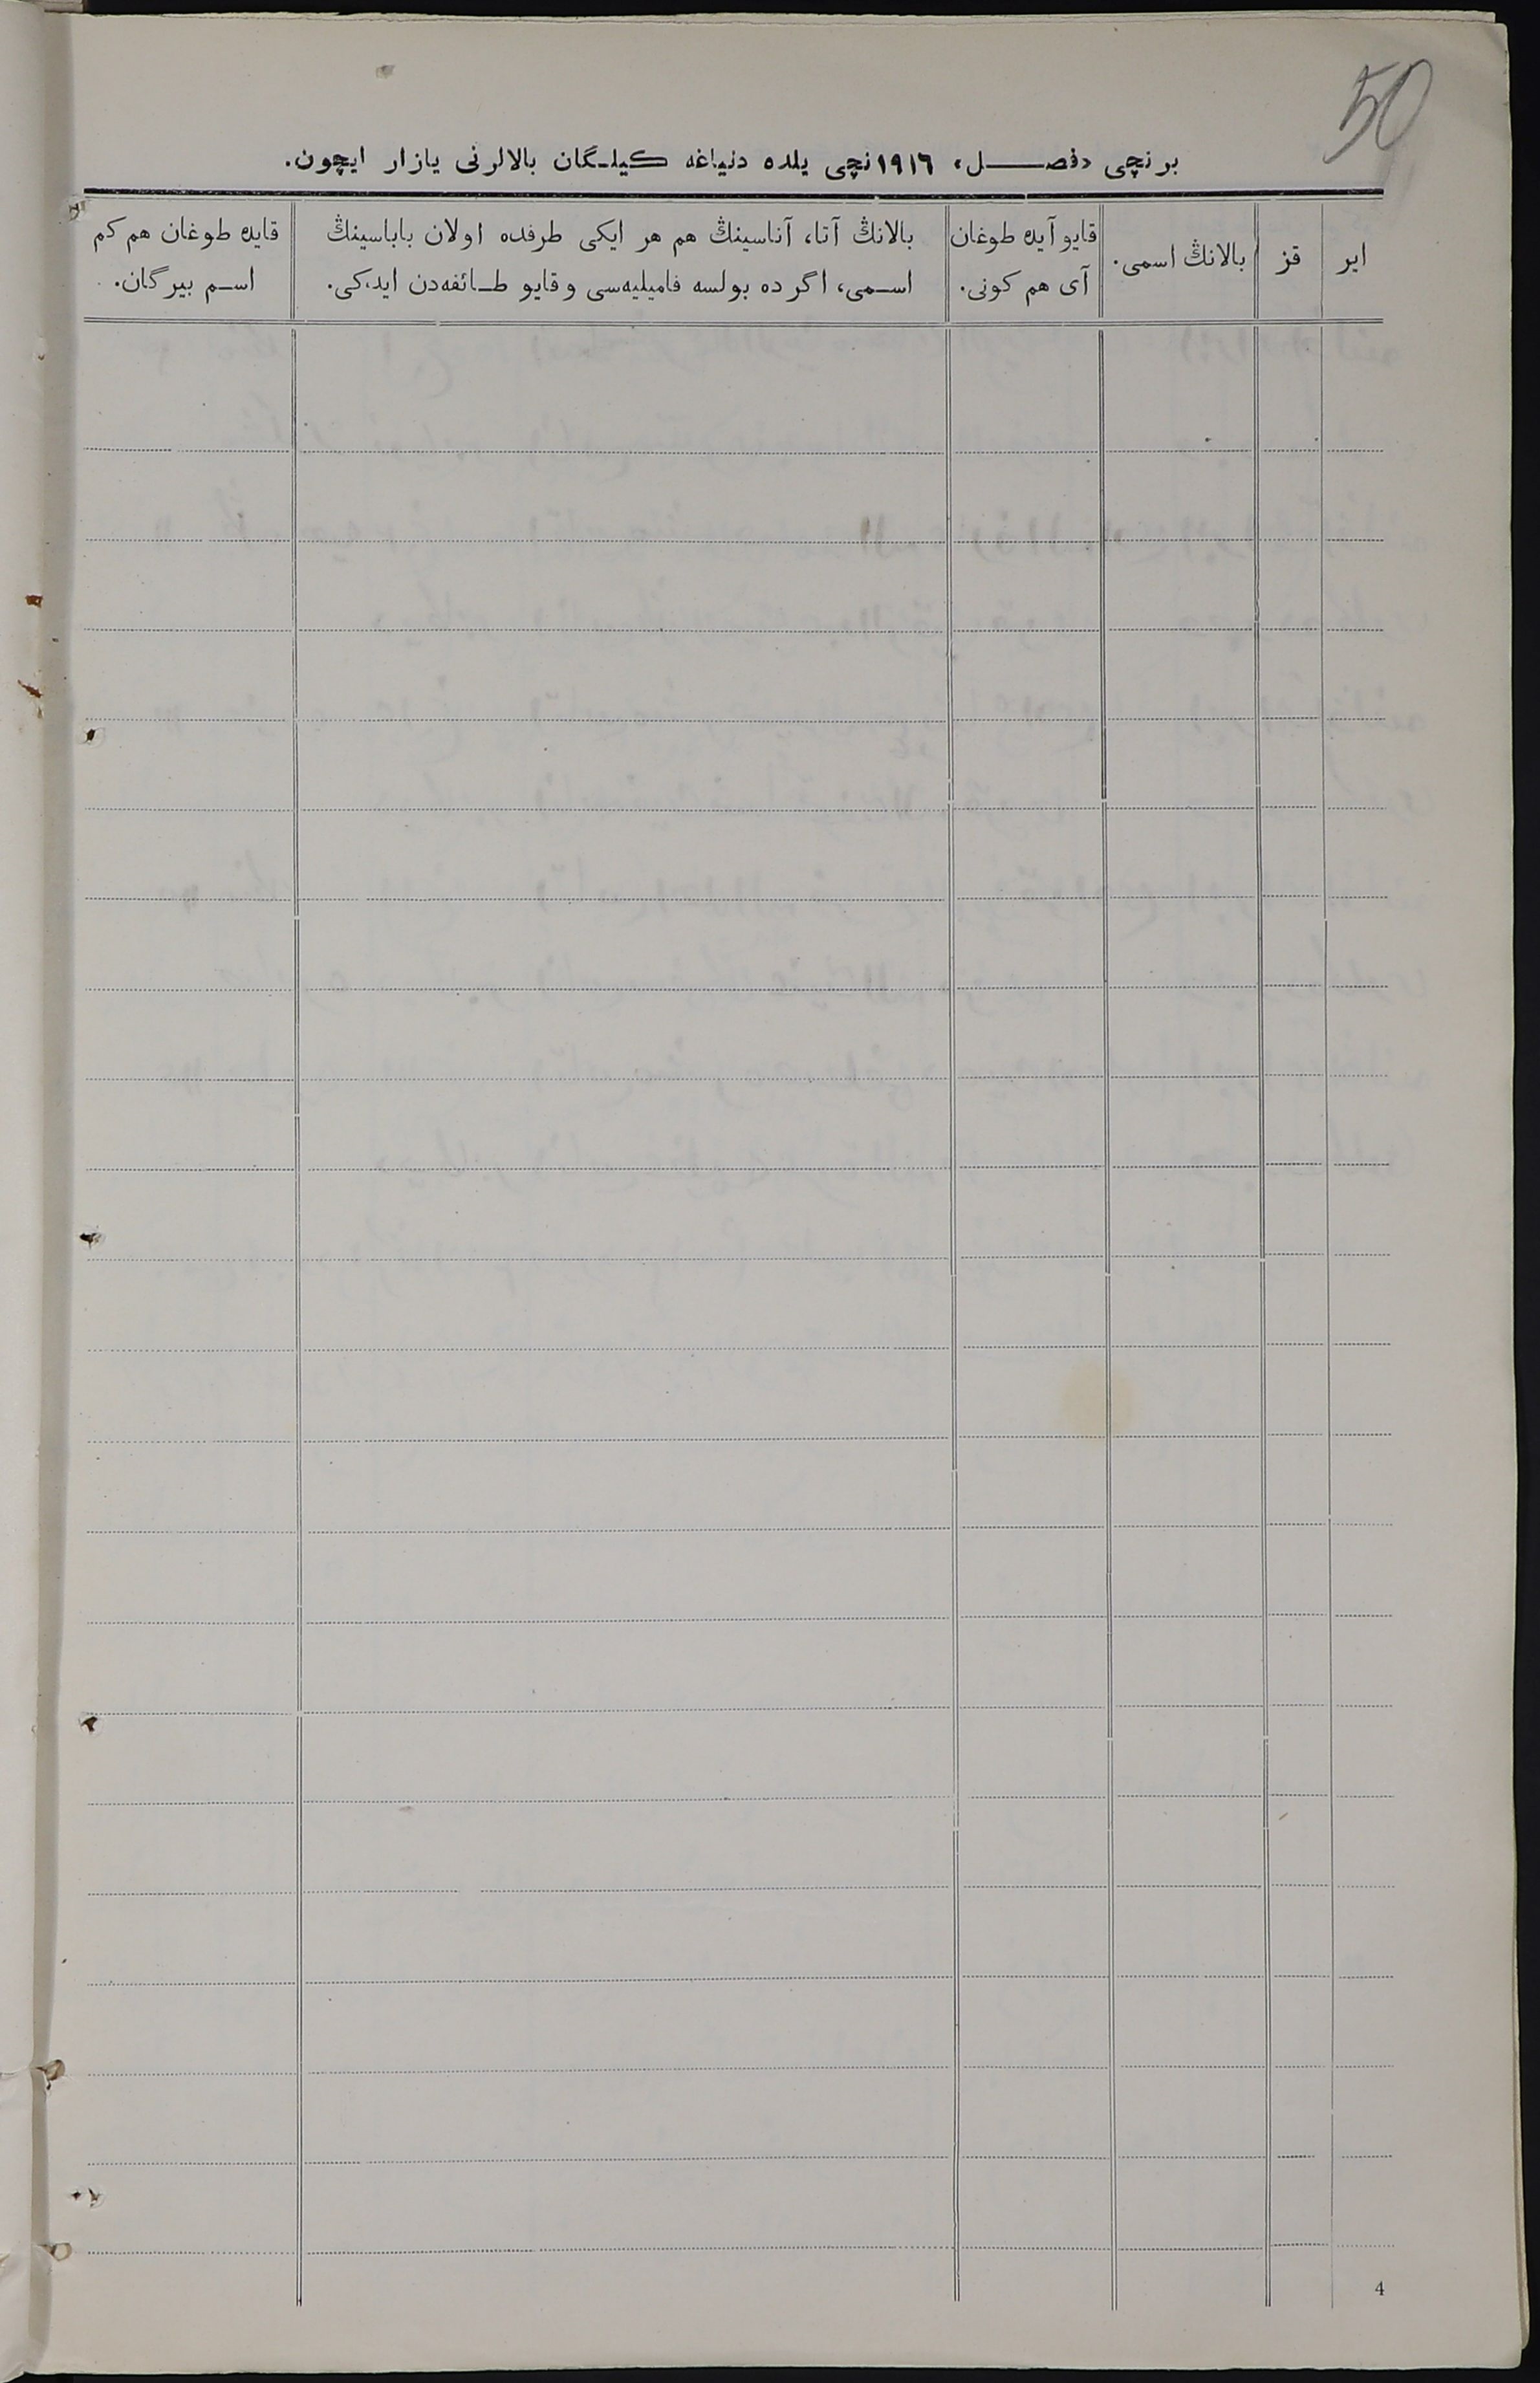 50
برنچی «فصل» ۱۹۱٦نچی یلده دنیاغه کیلگان بالالرنی یازار ایچون.
ایر
قز
بالانڭ اسمی.
قایو آیده طوغان
آی هم کونی.
بالانڭ آتا، آناسینڭ هم هر ایکی طرفده اولان باباسینڭ
اسمی، اگر ده بولسه فامیلیه‌سی و قایو طائفه‌دن ایدکی.
قایده طوغان هم کم
اسم بیرگان.
4